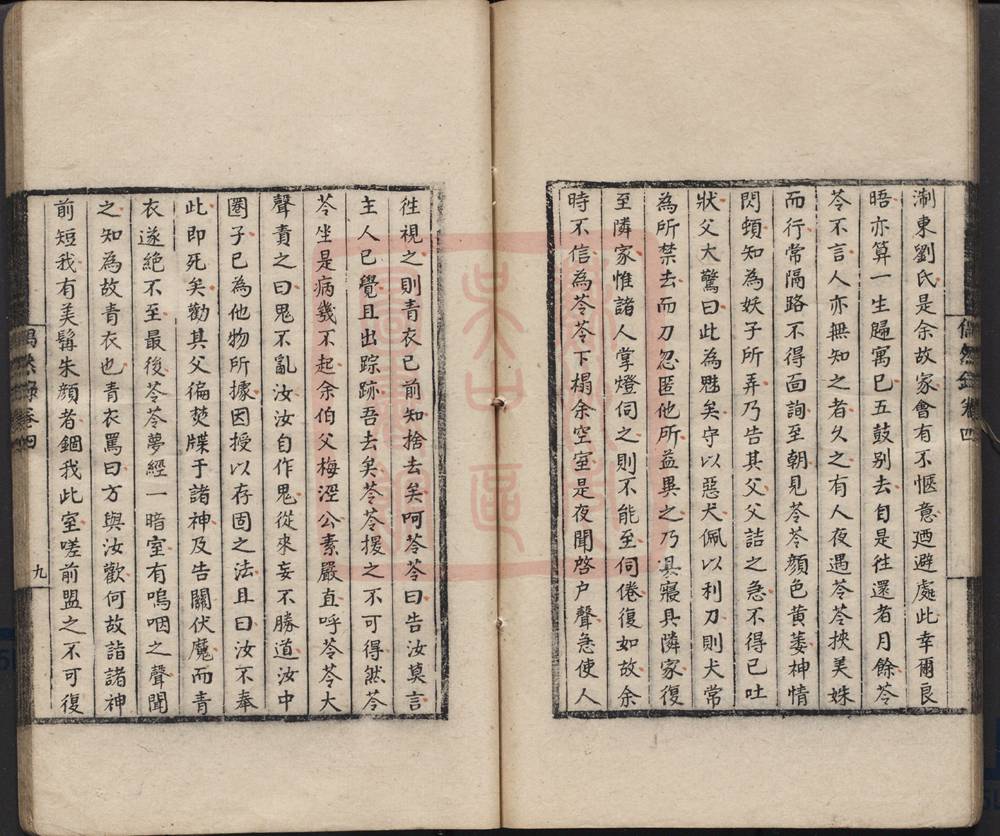 淛東劉氏是余故家會有不愜意廼避處此幸爾良
晤亦算一生歸寓已五鼓别去自是往還者月餘苓
苓不言人亦無知之者久之有人夜遇苓苓挾美姝
而行常隔路不得面詢至朝見苓苓顔色黄萎神情
閃頓知為妖子所弄乃告其父父詰之急不得已吐
狀父大驚曰此為魅矣守以惡犬佩以利刀則犬常
為所禁去而刀忽匿他所益異之乃具寢具隣家復
至隣家惟諸人掌燈伺之則不能至伺倦復如故余
時不信為苓苓下榻余空室是夜聞啓户聲急使人
徃視之則青衣已前知捨去矣呵苓苓曰告汝莫言
主人已覺且出踪跡吾去矣苓苓援之不可得然苓
苓坐是病幾不起余伯父梅溼公素嚴直呼苓苓大
聲責之曰鬼不亂汝汝自作鬼從來妄不勝道汝中
圈子已為他物所據因授以存固之法且曰汝不奉
此即死矣勸其父徧焚牒于諸神及告關伏魔而青
衣遂絶不至最後苓苓夢經一暗室有嗚咽之聲聞
之知為故青衣也青衣罵曰方與汝歡何故諸諸神
前短我有美髯朱顔者錮我此室嗟前盟之不可復
偶然錄卷四
九